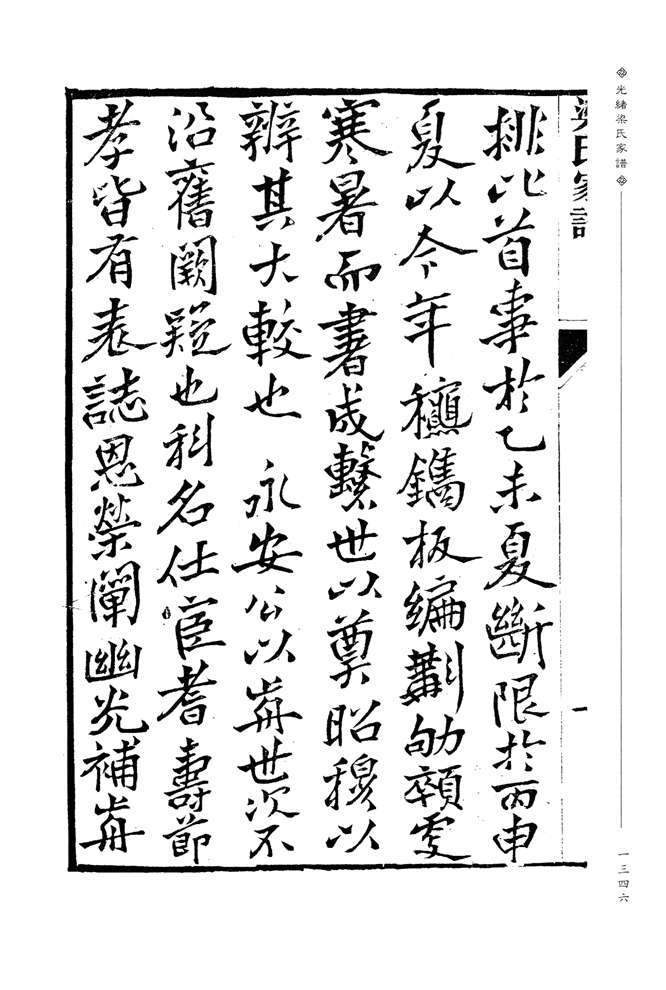 光緒梁氏家譜
一三四六
梁氏家譜
一
排比首事於乙未夏斷限於丙申
夏以今年龝鐫板編斠劬顇更
寒暑而書成繫世以奠昭穆以
辨其大較也 永安公以歬世次不
沿舊闕疑也科名仕宦耆壽節
孝皆有表誌恩榮闡幽光補歬